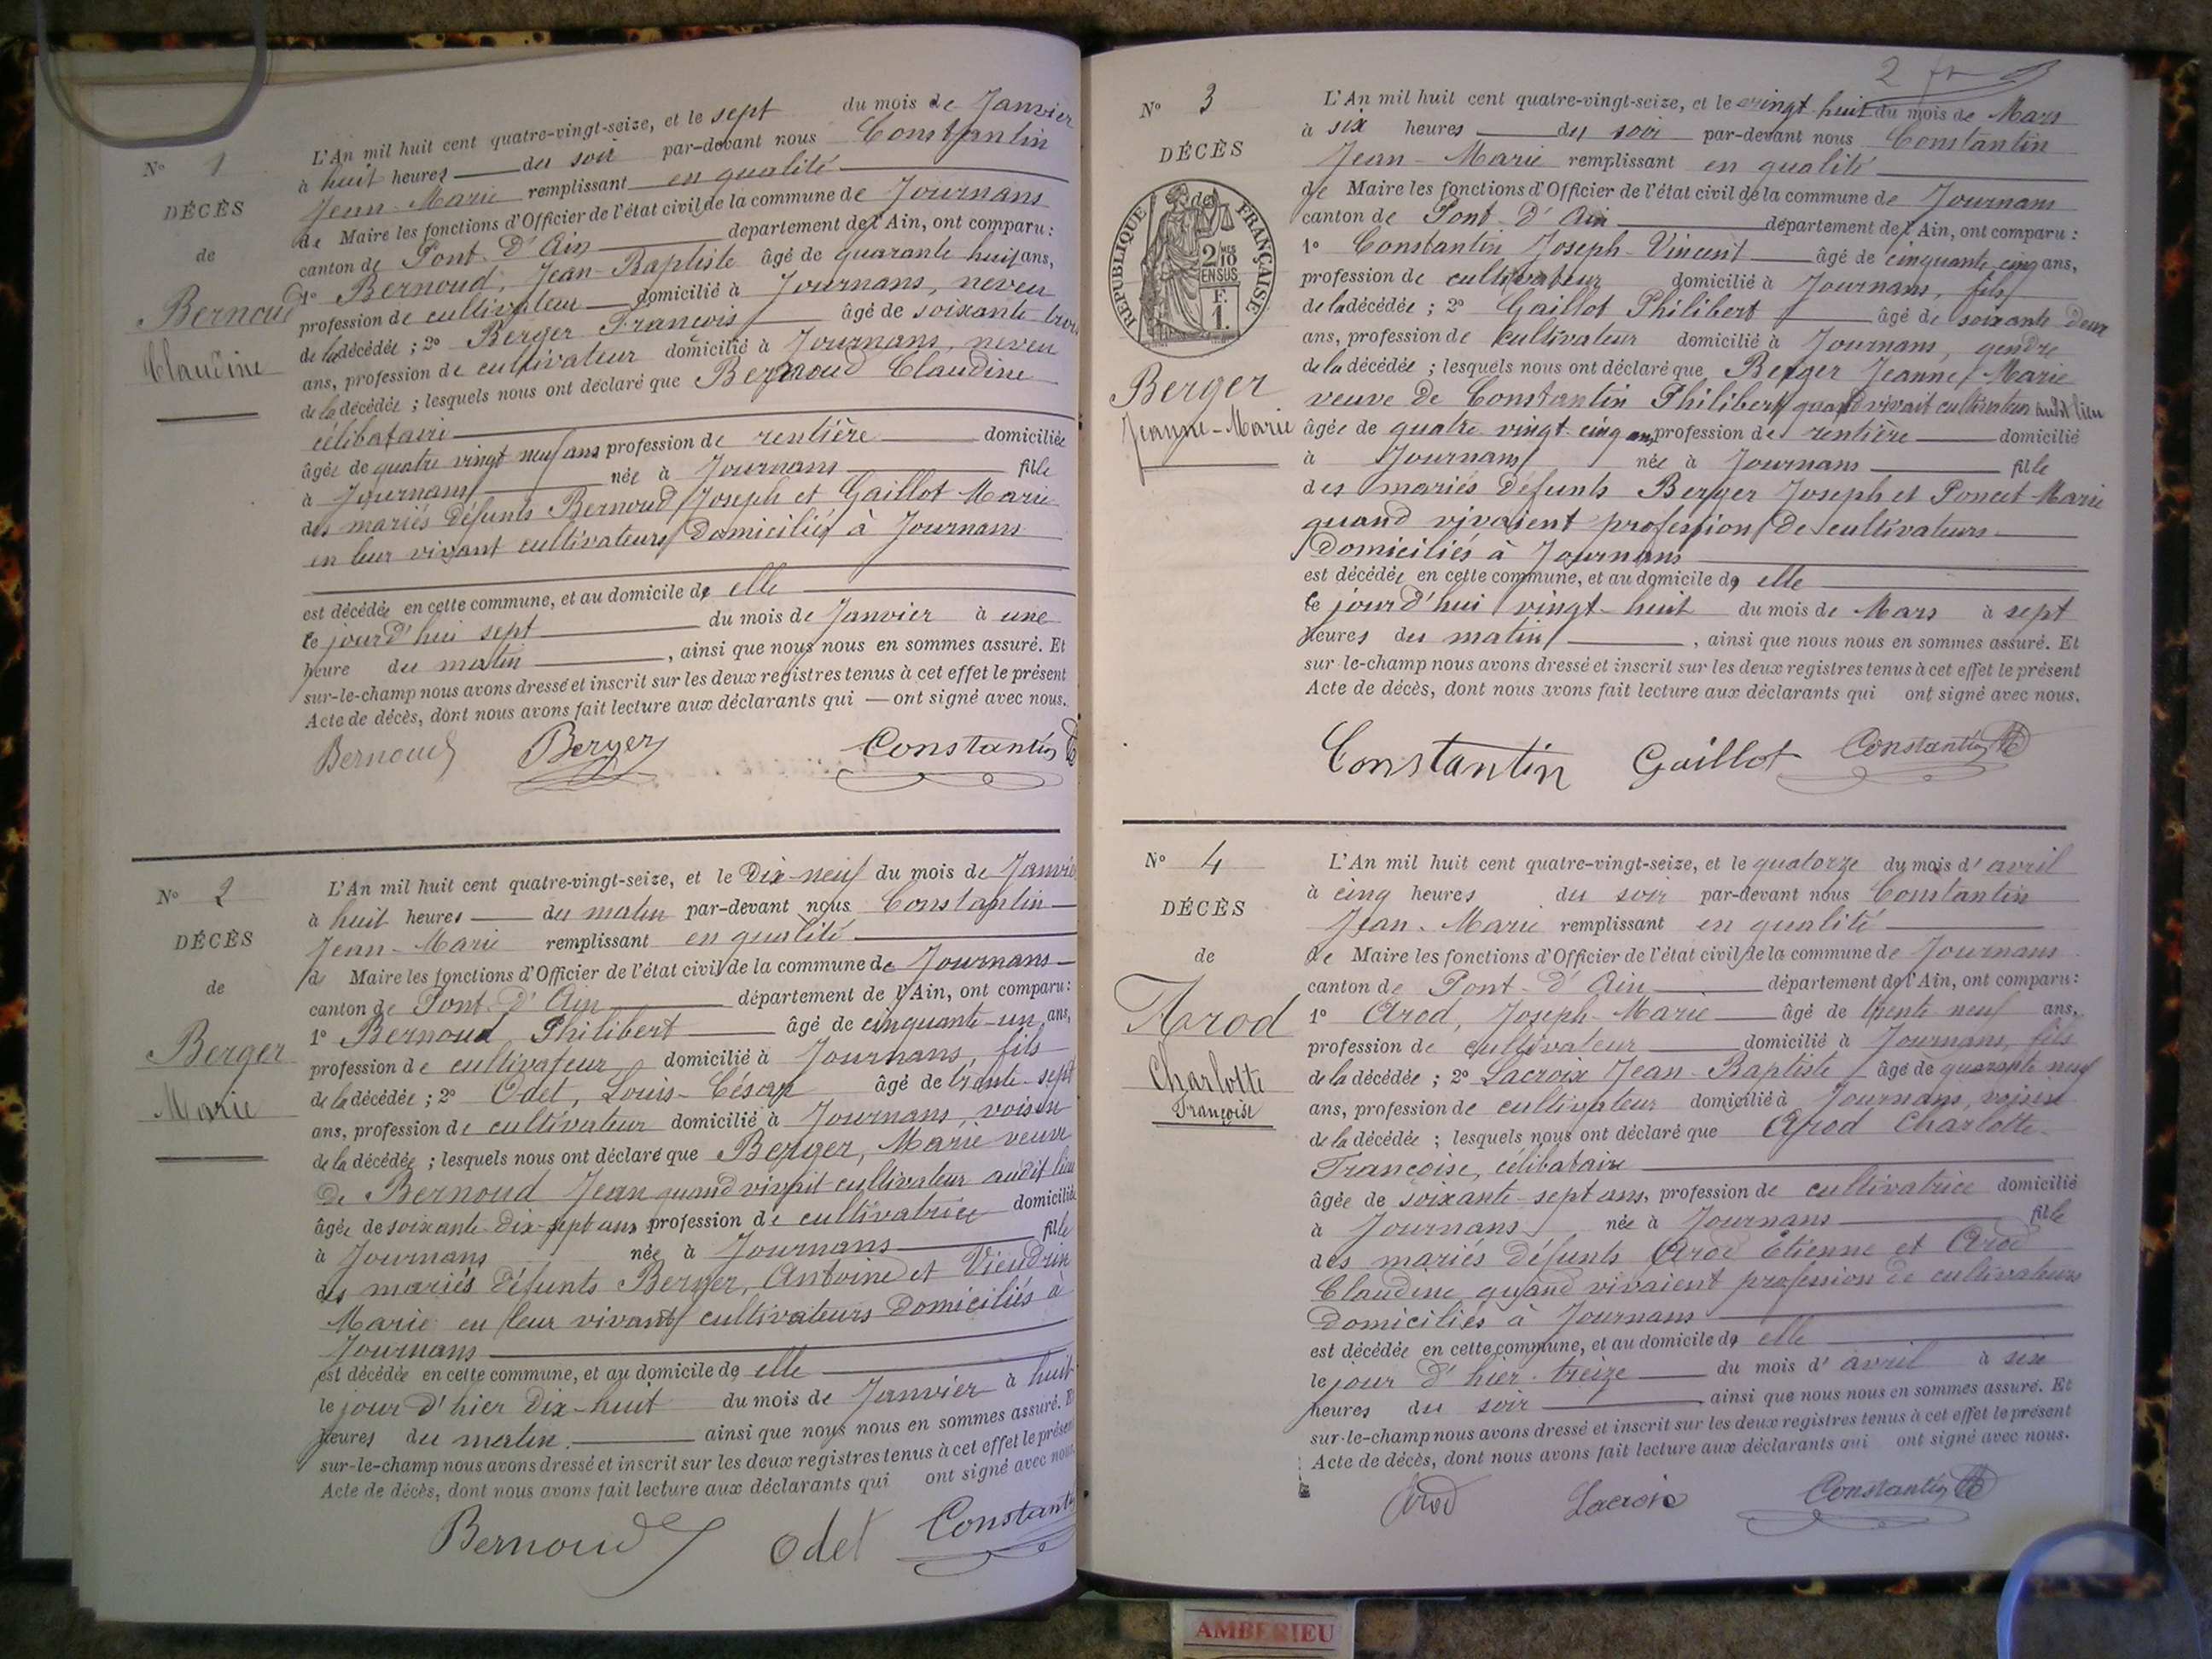 N° 1
DÉCÈS
de
Bernoud
Claudine
L'An mil huit cent quatre-vingt-seize, et le sept du mois de Janvier
à huit heures du soir par-devant nous Constantin
Jean-Marie remplissant en qualité
de Maire les fonctions d'Officier de l'état civil de la commune de Journans
canton de Pont-d'Ain département de l'Ain, ont comparu :
1° Bernoud, Jean-Baptiste âgé de quarante huit ans,
profession de cultivateur domicilié à Journans, neveu
de la décédée ; 2° Berger François âgé de soixante trois
ans, profession de cultivateur domicilié à Journans, neveu
de la décédée ; lesquels nous ont déclaré que Bernoud Claudine
célibataire
âgée de quatre vingt neuf ans profession de rentière domiciliée
à Journans née à Journans fille
des mariés défunts Bernoud Joseph et Gaillot Marie
en leur vivant cultivateurs domiciliés à Journans
est décédée en cette commune, et au domicile de elle
le jourd'hui sept du mois de Janvier à une
heure du matin, ainsi que nous nous en sommes assuré. Et
sur-le-champ nous avons dressé et inscrit sur les deux registres tenus à cet effet le présent
Acte de décès, dont nous avons fait lecture aux déclarants qui — ont signé avec nous.
Bernoud Berger Constantin
N° 2
DÉCÈS
de
Berger
Marie
L'An mil huit cent quatre-vingt-seize, et le dix-neuf du mois de Janvie
à huit heures du matin par-devant nous Constantin
Jean-Marie remplissant en qualité
de Maire les fonctions d'Officier de l'état civil de la commune de Journans
canton de Pont-d'Ain département de l'Ain, ont comparu :
1° Bernoud Philibert âgé de cinquante-un ans,
profession de cultivateur domicilié à Journans, fils
de la décédée ; 2° Odet, Louis-César âgé de trente-sept
ans, profession de cultivateur domicilié à Journans, voisin
de la décédée ; lesquels nous ont déclaré que Berger, Marie veuve
de Bernoud Jean quand vivait cultivateur audit lieu
âgée de soixante-dix-sept ans profession de cultivatrice domiciliée
à Journans née à Journans fille
des mariés défunts Berger, Antoine et Vieudrin
Marie en leur vivant cultivateurs domiciliés à
Journans
est décédée en cette commune, et au domicile de elle
le jour d'hier dix-huit du mois de Janvier à huit
heures du matin. ainsi que nous nous en sommes assuré. Et
sur-le-champ nous avons dressé et inscrit sur les deux registres tenus à cet effet le présent
Acte de décès, dont nous avons fait lecture aux déclarants qui ont signé avec nous
Bernoud Odet Constanti
2
N° 3
DÉCÈS
RÉPUBLIQUE FRANÇAISE
2 MES 10 EN SUS
F. 1.
Berger
Jeanne-Marie
L'An mil huit cent quatre-vingt-seize, et le vingt-huit du mois de Mars
à six heures du soir par-devant nous Constantin
Jean-Marie remplissant en qualité
de Maire les fonctions d'Officier de l'état civil de la commune de Journans
canton de Pont-d'Ain département de l'Ain, ont comparu :
1° Constantin Joseph-Vincent âgé de cinquante cinq ans,
profession de cultivateur domicilié à Journans, fils
de la décédée ; 2° Gaillot Philibert âgé de soixante deux
ans, profession de cultivateur domicilié à Journans, gendre
de la décédée ; lesquels nous ont déclaré que Berger Jeanne-Marie
veuve de Constantin Philibert quand vivait cultivateur audit lieu
âgée de quatre vingt cinq ans profession de rentière domicilié
à Journans née à Journans fille
des mariés défunts Berger Joseph et Poncet Marie
quand vivaient profession de cultivateurs
domiciliés à Journans
est décédée en cette commune, et au domicile de elle
le jourd'hui vingt-huit du mois de Mars à sept
heures du matin, ainsi que nous nous en sommes assuré. Et
sur-le-champ nous avons dressé et inscrit sur les deux registres tenus à cet effet le présent
Acte de décès, dont nous avons fait lecture aux déclarants qui ont signé avec nous.
Constantin Gaillot Constantin
N° 4
DÉCÈS
de
Arod
Charlotte
Françoise
L'An mil huit cent quatre-vingt-seize, et le quatorze du mois d'avril
à cinq heures du soir par-devant nous Constantin
Jean-Marie remplissant en qualité
de Maire les fonctions d'Officier de l'état civil de la commune de Journans
canton de Pont-d'Ain département de l'Ain, ont comparu :
1° Arod, Joseph-Marie âgé de trente neuf ans,
profession de cultivateur domicilié à Journans, fils
de la décédée ; 2° Lacroix Jean-Baptiste âgé de quarante neuf
ans, profession de cultivateur domicilié à Journans, voisin
de la décédée ; lesquels nous ont déclaré que Arod Charlotte
Françoise, célibataire
âgée de soixante-sept ans, profession de cultivatrice domicilié
à Journans née à Journans fille
des mariés défunts Arod Etienne et Arod
Claudine quand vivaient profession de cultivateurs
domiciliés à Journans
est décédée en cette commune, et au domicile de elle
le jour d'hier treize du mois d'avril à six
heures du soir ainsi que nous nous en sommes assuré. Et
sur-le-champ nous avons dressé et inscrit sur les deux registres tenus à cet effet le présent
Acte de décès, dont nous avons fait lecture aux déclarants qui ont signé avec nous.
Arod Lacroix Constantin
AMBERIEU